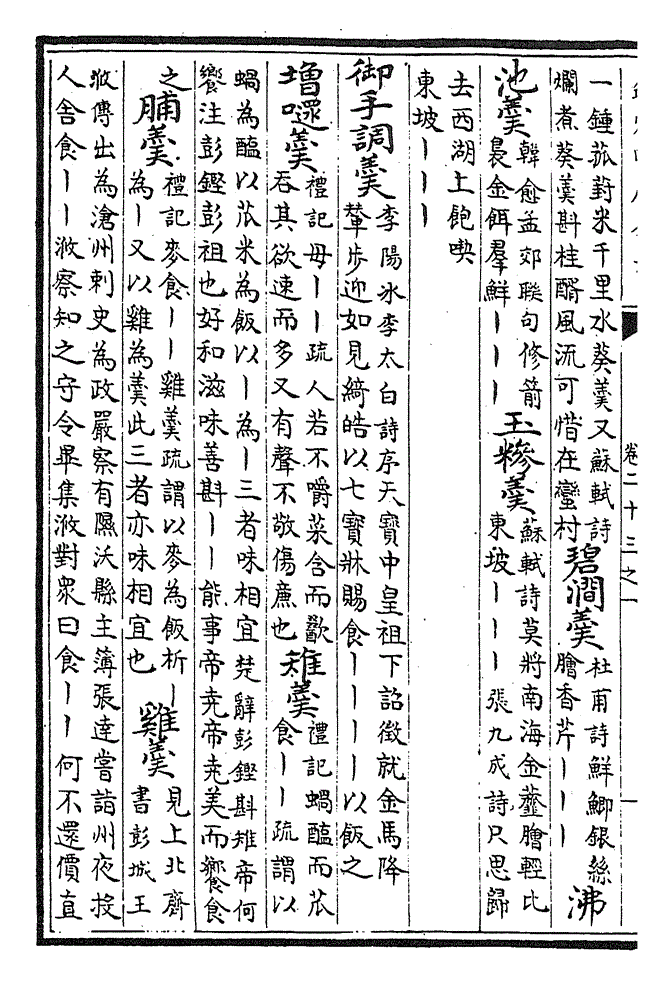 卷二十三之一
一
一鍾菰葑米千里水葵羹又蘇軾詩
爛煮葵羹斟桂醑風流可惜在蠻村
碧澗羹
杜甫詩鮮鯽銀絲
膾香芹丨丨丨
沸池羹
韓愈孟郊聯句修箭
裊金餌羣鮮丨丨丨
玉糝羹
蘇軾詩莫將南海金虀膾輕比
東坡丨丨丨張九成詩只思歸
去西湖上飽喫
東坡丨丨丨
御手調羹
李陽冰李太白詩序天寶中皇祖下詔徵就金馬降
輦步迎如見綺皓以七寶牀賜食丨丨丨丨以飯之
增嚃羹
禮記毋丨丨疏人若不嚼菜含而歠
吞其欲速而多又有聲不敬傷廉也
雉羹
禮記蝸醢而苽
食丨丨疏謂以
蝸為醢以苽米為飯以丨為丨三者味相宜楚辭彭鏗斟雉帝何
饗注彭鏗彭祖也好和滋味善斟丨丨能事帝堯帝堯美而饗食
之
脯羹
禮記麥食丨丨雞羹疏謂以麥為飯析丨
為丨又以雞為羹此三者亦味相宜也
雞羹
見上北齊
書彭城王
浟傳出為滄州刺史為政嚴察有隰沃縣主簿張達嘗詣州夜投
人舍食丨丨浟察知之守令畢集浟對眾曰食丨丨何不還價直